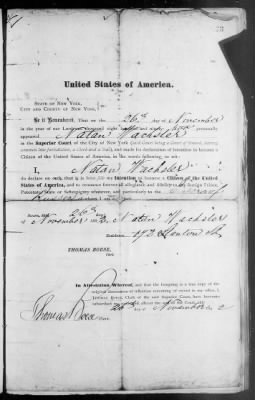 United States of America.
STATE OF NEW YORK,
CITY AND COUNTY OF NEW YORK,
Be it Remembered, That on the 26th day of November
in the year of our Lord one thousand eight hundred and personally
appeared Natan Wachsler
in the Superior Court of the City of New York (said Court being a Court of Record, having
common law jurisdiction, a Clerk and a Seal), and made his declaration of Intention to become a
Citizen of the United States of America, in the words following, to wit:
I, Natan Wachsler
do declare on oath, that it is bona fide my intention to become a Citizen of the United
States of America, and to renounce forever all allegiance and fidelity to any foreign Prince,
Potentate, State or Sovereignty whatever, and particularly to the
Sworn, this 26th
of November Natan Wachsler
Residence 192 Stanton St
THOMAS BOESE,
Clerk.
In Attestation Whereof, and that the foregoing is a true copy of the
original declaration of intention remaining of record in my office, I,
THOMAS BOESE, Clerk of the said Superior Court, have hereunto
subscribed my name and affixed the seal of the said Court, this
26th day of November
Thomas Boese
Clerk.